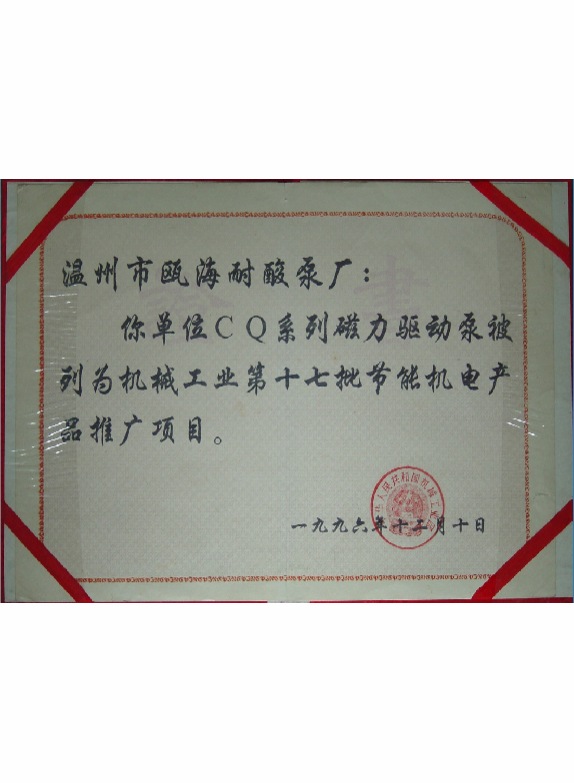 温州市瓯海耐酸泵厂：
你单位CQ系列磁力驱动泵被
列为机械工业第十七批节能机电产
品推广项目。
一九九六年十二月十日